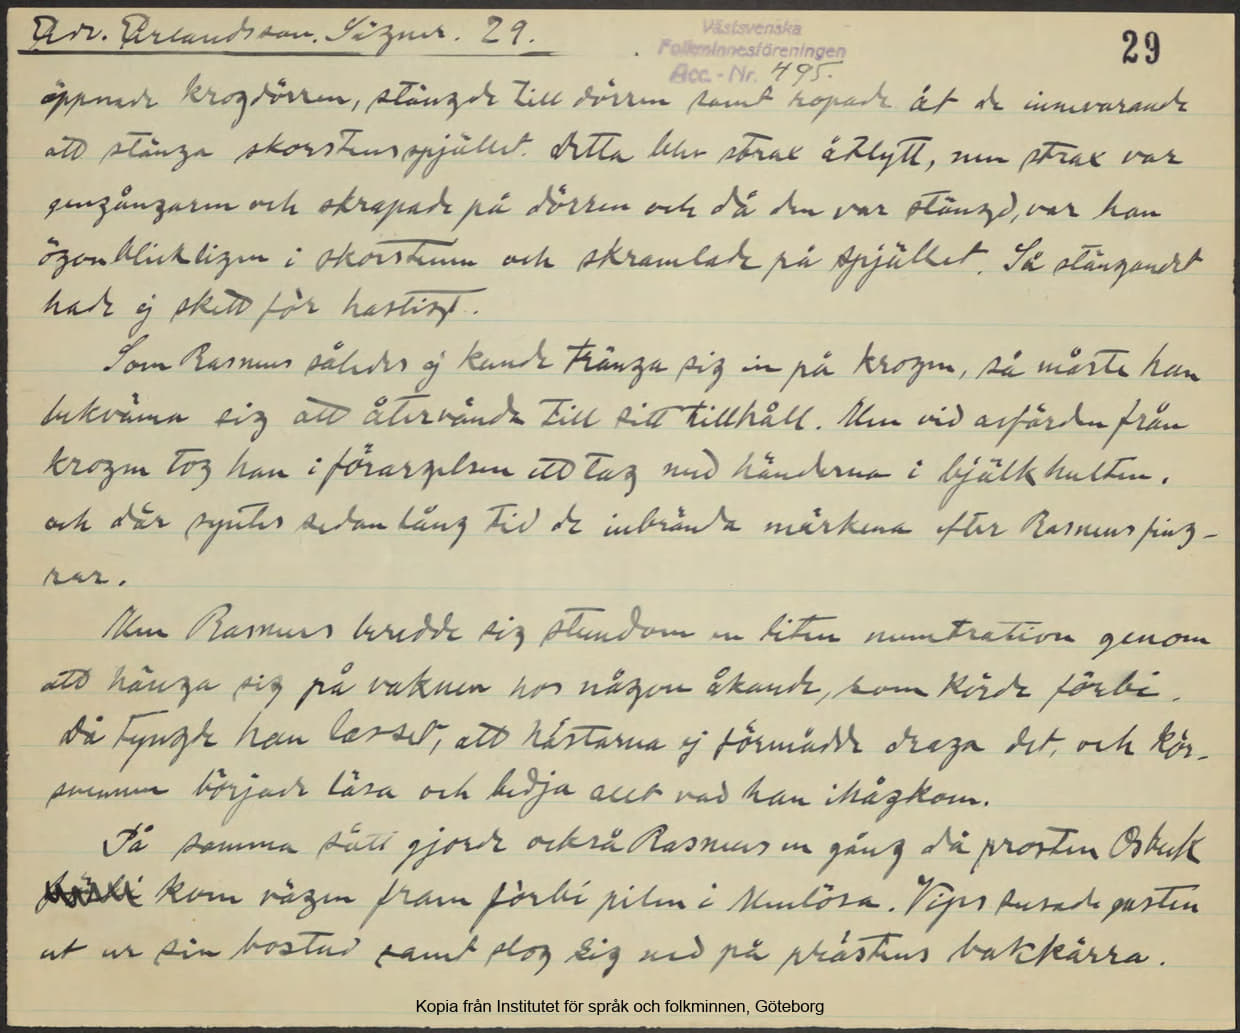 Adv. Arlandsson. Signer. 29.
Västsvenska
Folkminnesföreningen
Acc.-Nr. 495.
29
öppnade krogdörren, stängde till dörren samt ropade åt de innevarande
att stänga skorstensspjället. Detta blev strax åtlytt, men strax var
gengångaren och skrapade på dörren och då den var stängd, var han
ögonblickligen i skorstenen och skramlade på spjället. Så stängandet
hade ej skett för hastigt.
Som Rasmus således ej kunde tränga sig in på krogen, så måste han
bekväma sig att återvända till sitt tillhåll. Men vid avfärden från
krogen tog han i förargelsen ett tag med händerna i bjälkhulten.
och där syntes sedan lång tid de inbrända märkena efter Rasmus fing-
rar.
Men Rasmus beredde sig stundom en liten muntration genom
att hänga sig på vaknen hos någon åkande, som körde förbi.
Då tyngde han lasset, att hästarna ej förmådde draga det, och kör-
svennen började läsa och bedja allt vad han ihågkom.
På samma sätt gjorde också Rasmus en gång då prosten Osbeck
kom vägen fram förbi pilen i Menlösa. Vips susade gasten
ut ur sin bostad samt slog sig ned på prästens bakkärra.
Kopia från Institutet för språk och folkminnen, Göteborg